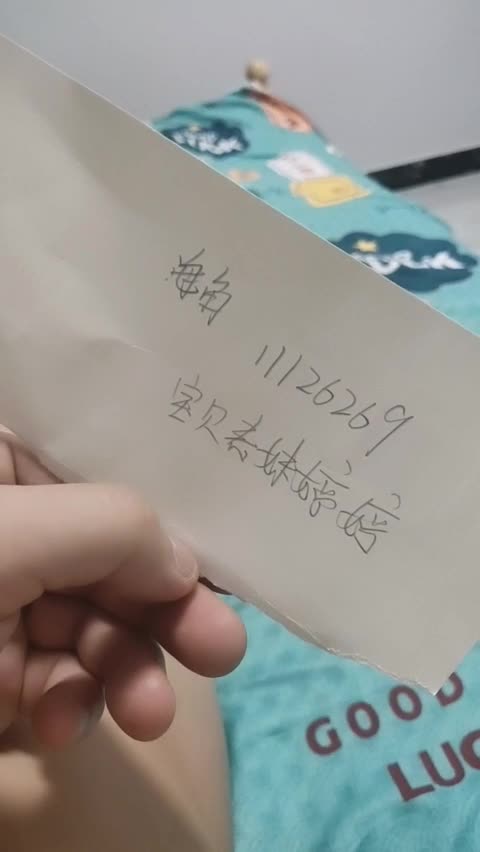 海角
11126269
宝贝表妹婷婷
GOOD
LUC